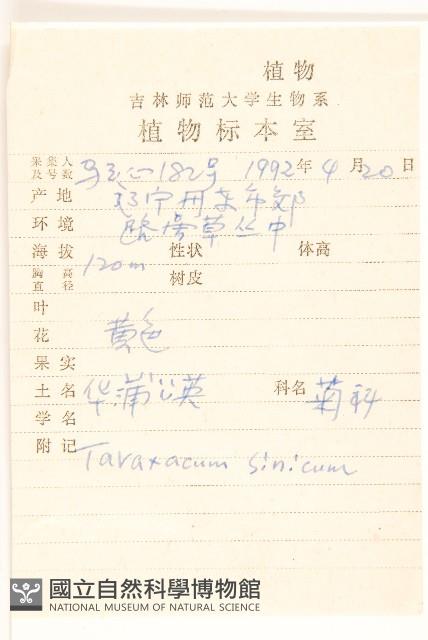 植物
吉林师范大学生物系
植物标本室
采集人及号数 马 182号 1992年4月20日
产地 辽宁丹东市郊
环境 路旁草丛中
海拔 120m 性状 体高
胸高直径 树皮
叶
花 黄色
果实
土名 华蒲公英 科名 菊科
学名
附记 Taraxacum sinicum
國立自然科學博物館
NATIONAL MUSEUM OF NATURAL SCIENCE